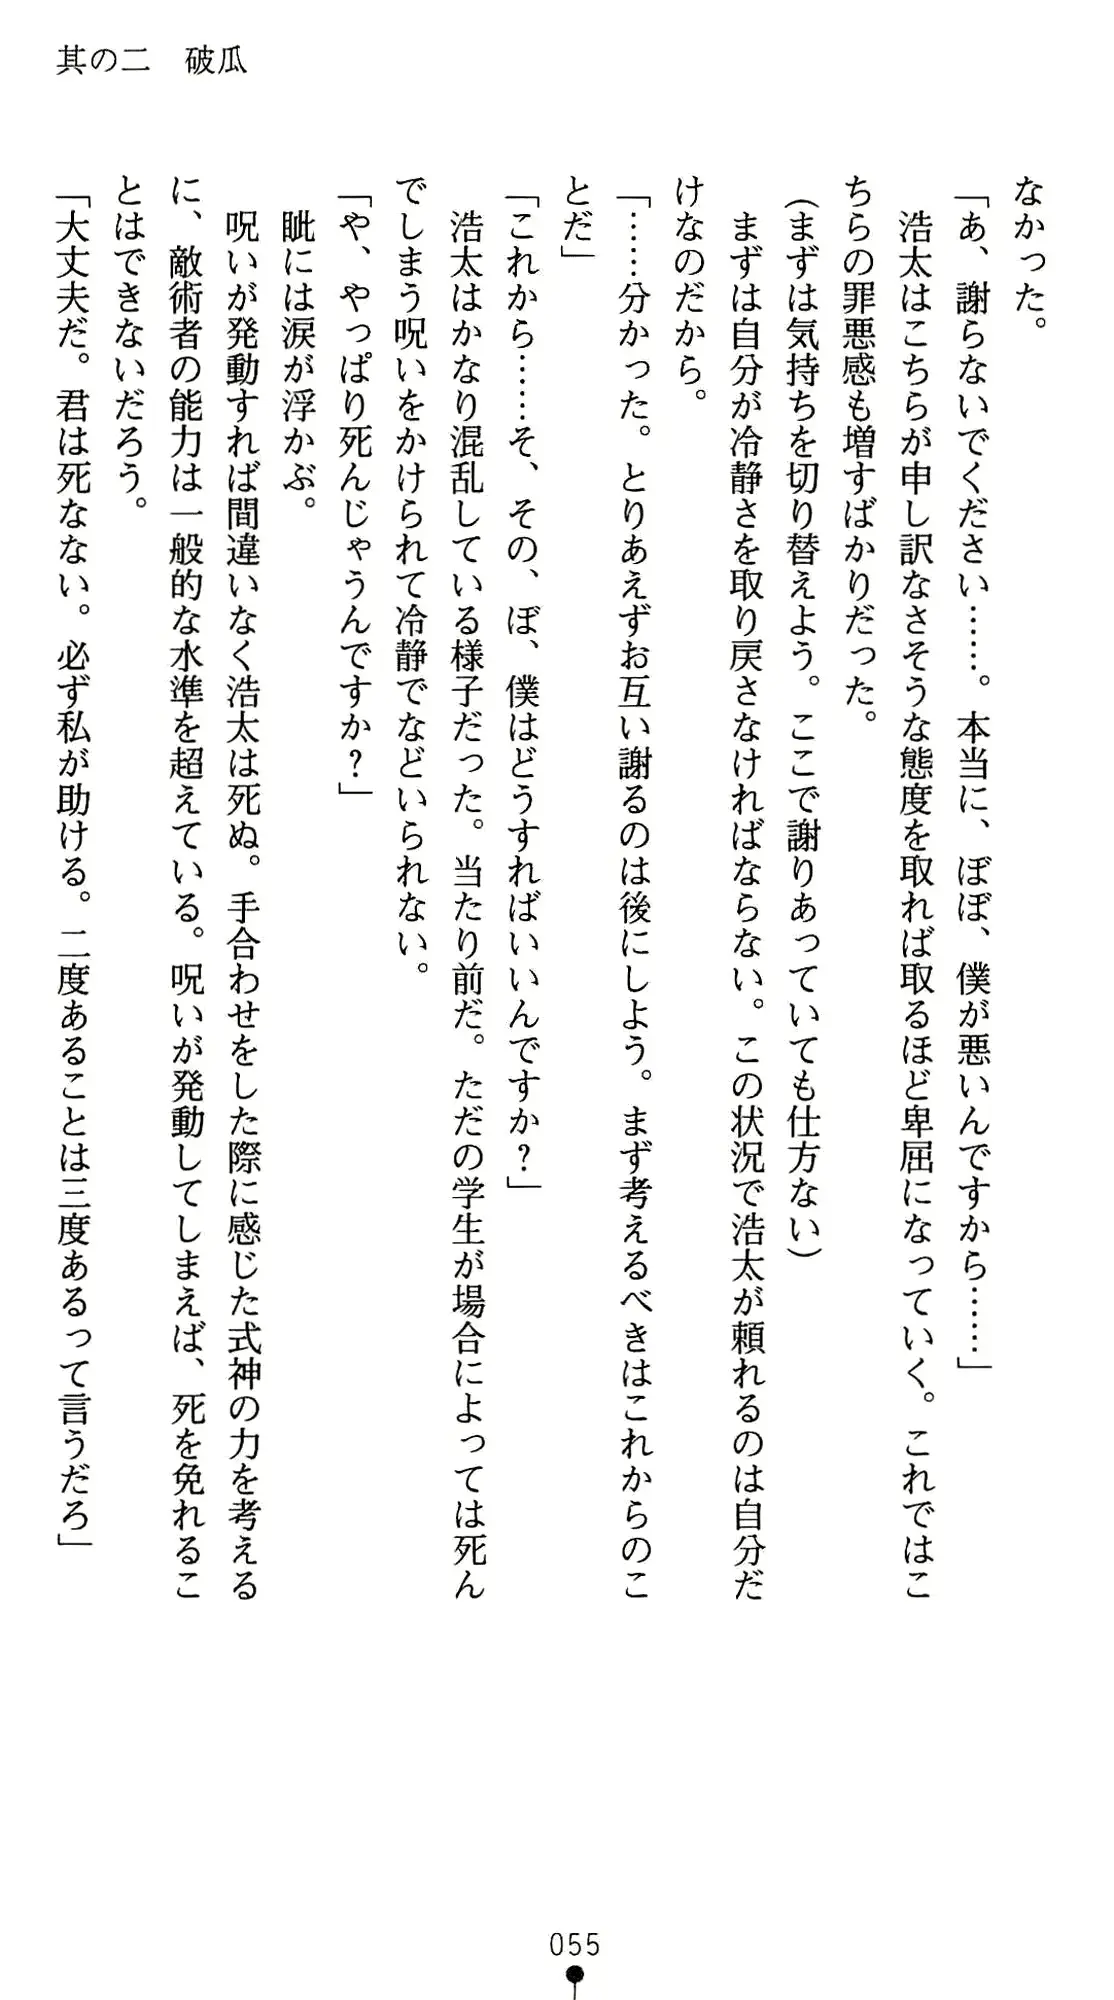 其の二　破瓜
なかった。
「あ、謝らないでください……。本当に、ぼぼ、僕が悪いんですから……」
　浩太はこちらが申し訳なさそうな態度を取れば取るほど卑屈になっていく。これではこ
ちらの罪悪感も増すばかりだった。
（まずは気持ちを切り替えよう。ここで謝りあっていても仕方ない）
　まずは自分が冷静さを取り戻さなければならない。この状況で浩太が頼れるのは自分だ
けなのだから。
「……分かった。とりあえずお互い謝るのは後にしよう。まず考えるべきはこれからのこ
とだ」
「これから……そ、その、ぼ、僕はどうすればいいんですか？」
　浩太はかなり混乱している様子だった。当たり前だ。ただの学生が場合によっては死ん
でしまう呪いをかけられて冷静でなどいられない。
「や、やっぱり死んじゃうんですか？」
　眦には涙が浮かぶ。
　呪いが発動すれば間違いなく浩太は死ぬ。手合わせをした際に感じた式神の力を考える
に、敵術者の能力は一般的な水準を超えている。呪いが発動してしまえば、死を免れるこ
とはできないだろう。
「大丈夫だ。君は死なない。必ず私が助ける。二度あることは三度あるって言うだろ」
055